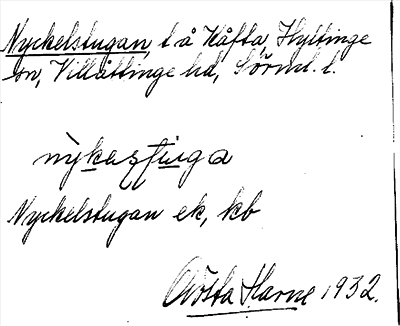 Nyckelstugan, t å Håfta, Hyltinge
sn, Villåttinge hd, Sörml. l.
Nyckelstugan ek, kb
Gösta Harne 1932.